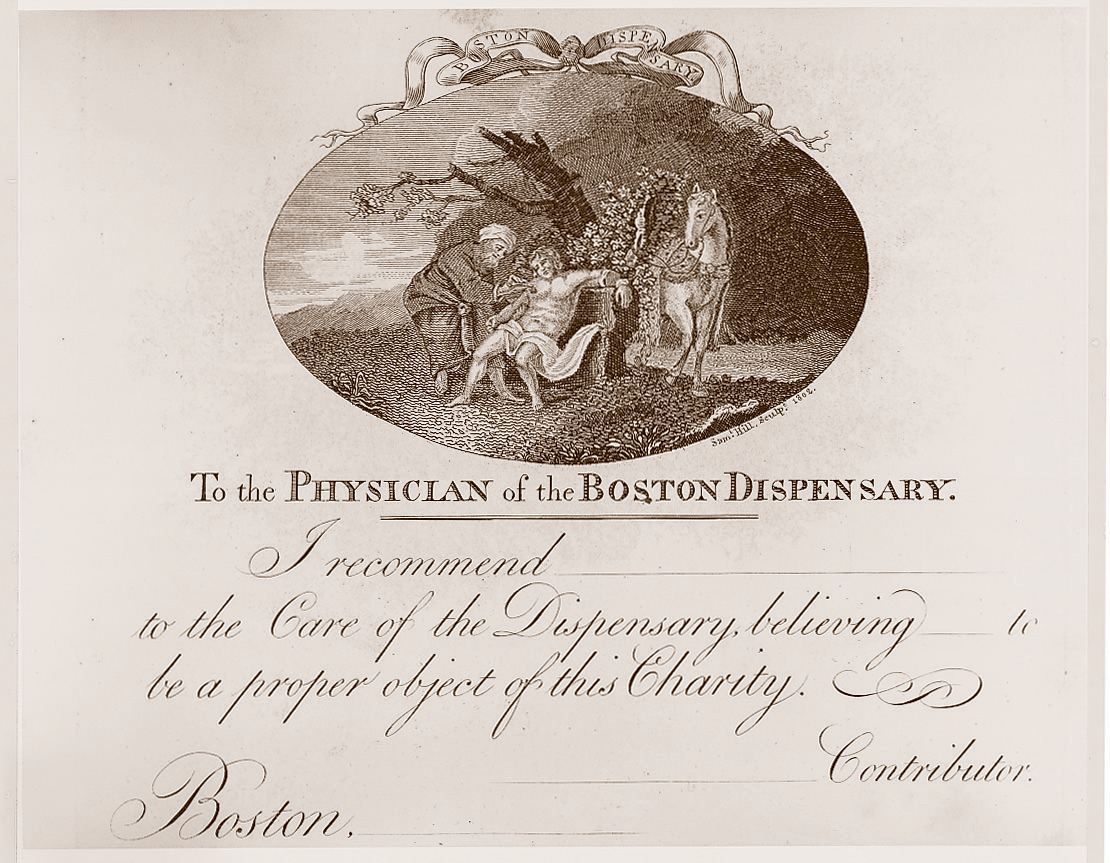 BOSTON DISPENSARY
Sam.l Hill, Sculp.t 1802.
To the PHYSICIAN of the BOSTON DISPENSARY.
I recommend
to the Care of the Dispensary, believing to
be a proper object of this Charity.
Contributor.
Boston,